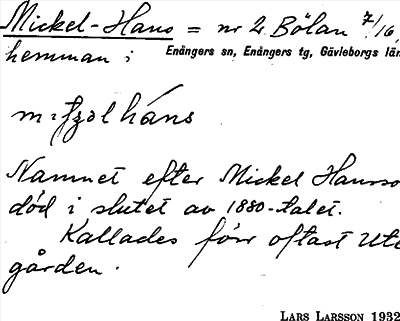 Mickel-Hans = nr 2 Bölan 7/16,
hemman i
Enångers sn, Enångers tg, Gävleborgs län
háns
Namnet efter Mickel Hansso
död i slutet av 1880-talet.
Kallades förr oftast Ute
gården.
LARS LARSSON 1932